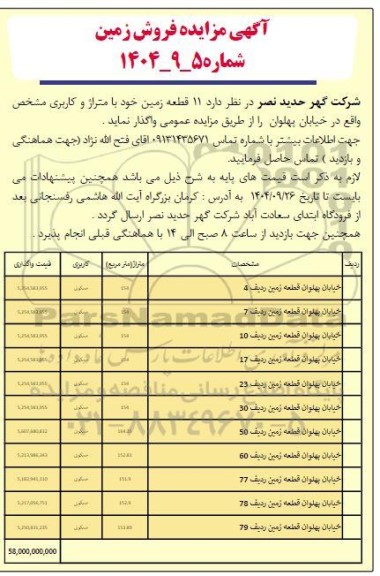 آگهی مزایده فروش زمین
شماره ۵_۹_۱۴۰۴
شرکت گهر حدید نصر در نظر دارد ۱۱ قطعه زمین خود با متراژ و کاربری مشخص
واقع در خیابان پهلوان را از طریق مزایده عمومی واگذار نماید .
جهت اطلاعات بیشتر با شماره تماس ۰۹۱۳۱۴۳۵۶۷۱ اقای فتح الله نژاد (جهت هماهنگی
و بازدید ) تماس حاصل فرمایید.
لازم به ذکر است قیمت های پایه به شرح ذیل می باشد همچنین پیشنهادات می
بایست تا تاریخ ۱۴۰۴/۰۹/۲۶ به آدرس : کرمان بزرگراه آیت الله هاشمی رفسنجانی بعد
از فرودگاه ابتدای سعادت آباد شرکت گهر حدید نصر ارسال گردد .
همچنین جهت بازدید از ساعت ۸ صبح الی ۱۴ با هماهنگی قبلی انجام پذیرد .
ردیف مشخصات متراژ(متر مربع) کاربری قیمت واگذاری
خیابان پهلوان قطعه زمین ردیف 4 مسکونی
خیابان پهلوان قطعه زمین ردیف 7 مسکونی
خیابان پهلوان قطعه زمین ردیف 10 مسکونی
خیابان پهلوان قطعه زمین ردیف 17 مسکونی
خیابان پهلوان قطعه زمین ردیف 23 مسکونی
خیابان پهلوان قطعه زمین ردیف 30 مسکونی
خیابان پهلوان قطعه زمین ردیف 50 مسکونی
خیابان پهلوان قطعه زمین ردیف 60 مسکونی
خیابان پهلوان قطعه زمین ردیف 77 مسکونی
خیابان پهلوان قطعه زمین ردیف 78 مسکونی
خیابان پهلوان قطعه زمین ردیف 79 مسکونی
58,000,000,000
ParsNamadData
۰۲۱-۸۸۳۴۹۶۷۰-۸